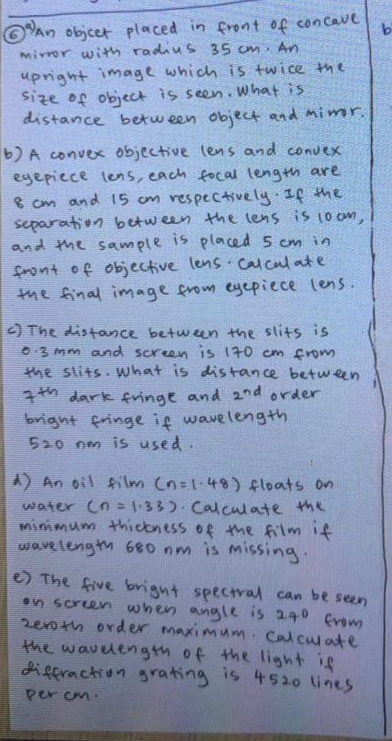 6 a) An objcet placed in front of concave
mirror with radius 35 cm. An
upright image which is twice the
size of object is seen. What is
distance between object and mirror.
b) A convex objective lens and convex
eyepiece lens, each focal length are
8 cm and 15 cm respectively. If the
separation between the lens is 10 cm,
and the sample is placed 5 cm in
front of objective lens. Calculate
the final image from eyepiece lens.
c) The distance between the slits is
0.3 mm and screen is 170 cm from
the slits. What is distance between
7th dark fringe and 2nd order
bright fringe if wavelength
520 nm is used.
d) An oil film (n=1.48) floats on
water (n=1.33). Calculate the
minimum thickness of the film if
wavelength 680 nm is missing.
e) The five bright spectral can be seen
on screen when angle is 240 from
zeroth order maximum. Calculate
the wavelength of the light if
diffraction grating is 4520 lines
per cm.
b